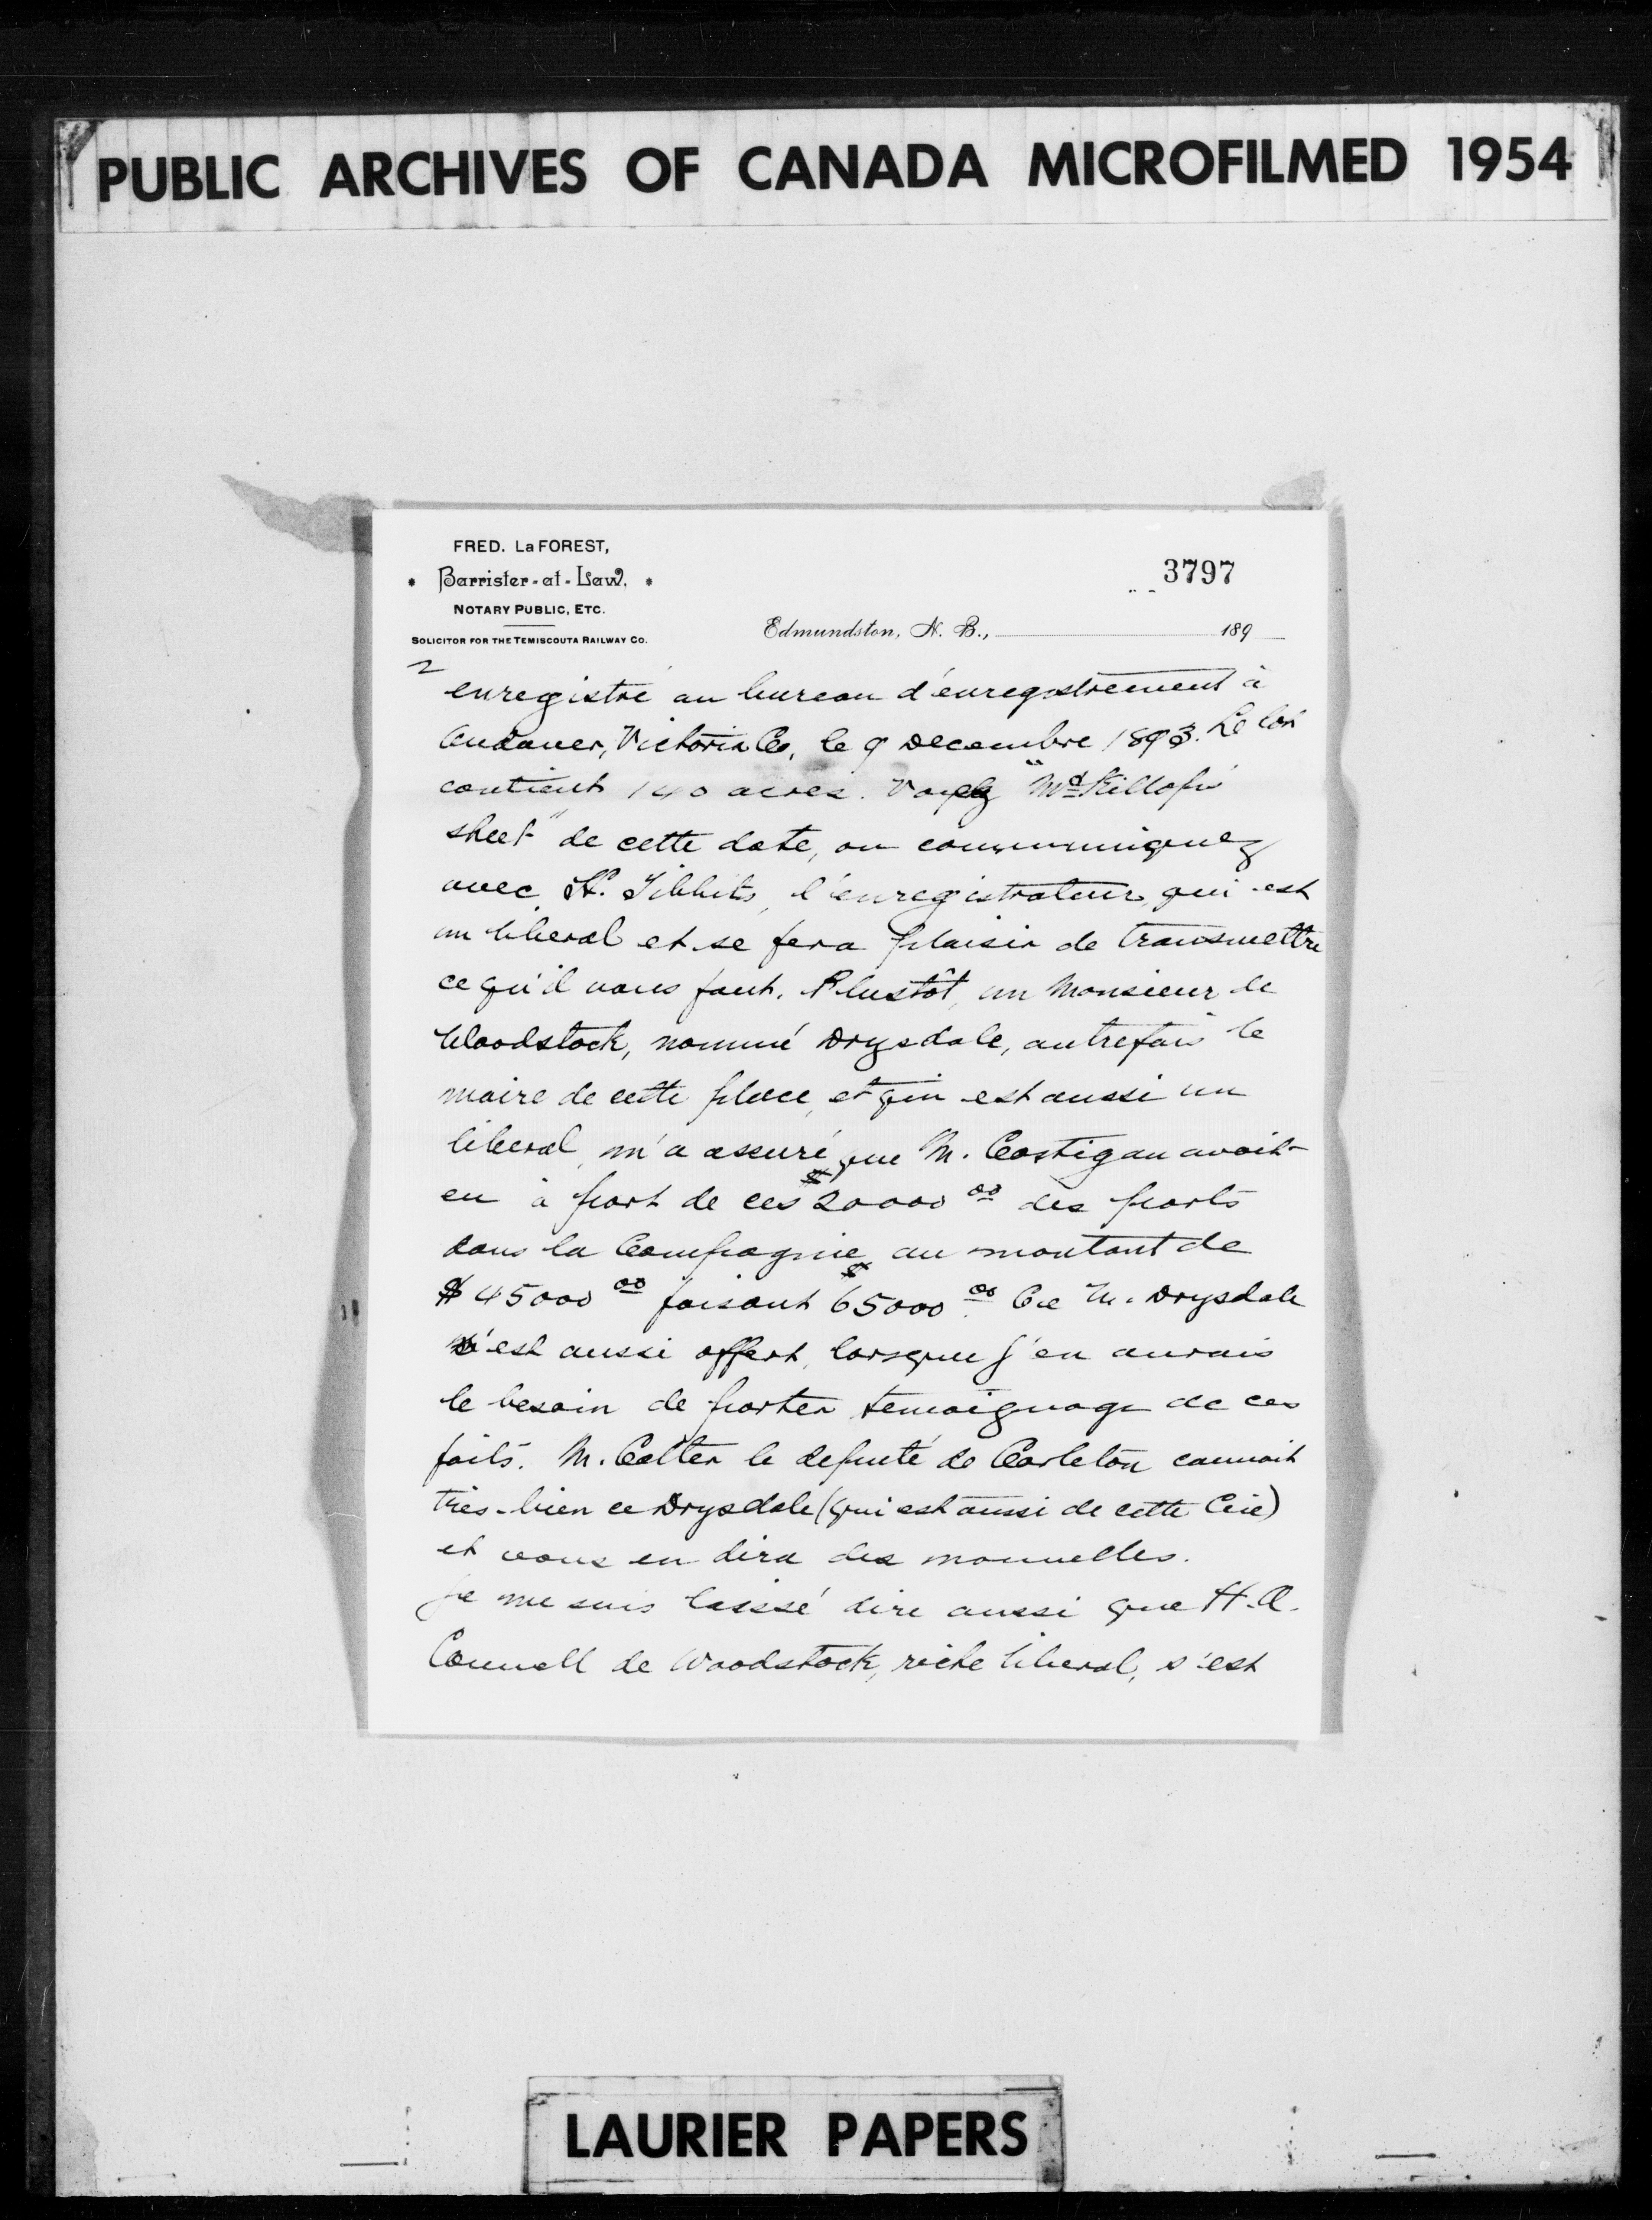 PUBLIC ARCHIVES OF CANADA MICROFILMED 1954
FRED. La FOREST,
* Barrister-at-Law, *
NOTARY PUBLIC, ETC.
SOLICITOR FOR THE TEMISCOUTA RAILWAY CO.
3797
Edmundston, N. B., 189
2
enregistré au bureau d'enregistrement à
Andover, Victoria Co, le 9 Decembre 1893. Le lot
contient 140 acres. Voyez "McKillop's
sheet" de cette date, ou communiquez
avec Tibbits, l'enregistrateur, qui est
un liberal et se fera plaisir de transmettre
ce qu'il vous faut. Plustôt, un Monsieur de
Woodstock, nommé Drysdale, autrefois le
maire de cette place, et qui est aussi un
liberal, m'a assuré que M. Costigan avait
eu à part de ces $20000 00 des parts
dans la Compagnie au montant de
$45000 00 faisant $65000 00. Ce M. Drysdale
s'est aussi offert, lorsque j'en aurais
le besoin de porter temoignage de ces
faits. M. Colter le deputé de Carleton connait
très-bien ce Drysdale (qui est aussi de cette Cie)
et vous en dira des nouvelles.
Je me suis laissé dire aussi que H. A.
Connell de Woodstock, riche liberal, s'est
LAURIER PAPERS